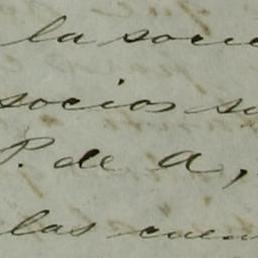 la socie
socios su
P. de A,
las cuen